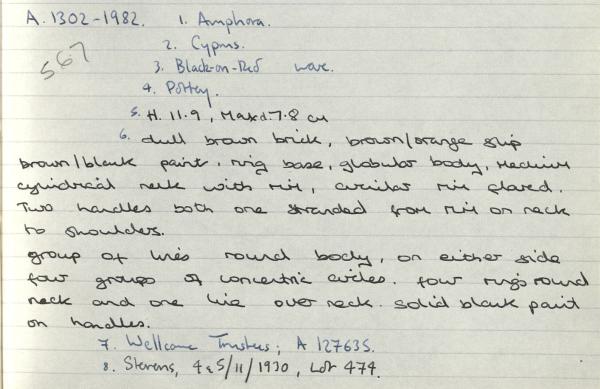 A. 1302-1982. 1. Amphora.
567
2. Cyprus.
3. Black-on-Red ware.
4. Pottery.
5. H. 11.9, Max d 7.8 cm
6. dull brown brick, brown/orange slip
brown/blank paint. ring base, globular body, medium
cylindrical neck with rim, circular rim flared.
Two handles both one stranded from rim on neck
to shoulders.
group of lines round body, on either side
four groups of concentric circles. four rings round
neck and one line over neck. solid blank paint
on handles.
7. Wellcome Trustees; A 127635.
8. Stevens, 4 & 5/11/1930, Lot 474.